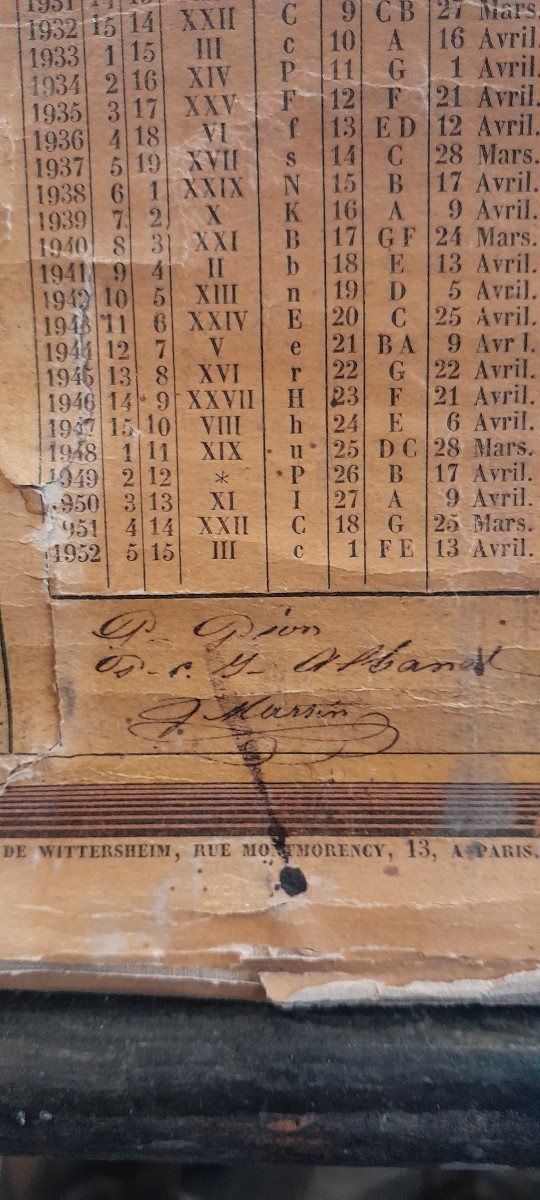 1932 15 14 XXII C 9 C B 27 Mars.
1933 1 15 III c 10 A 16 Avril.
1934 2 16 XIV P 11 G 1 Avril.
1935 3 17 XXV F 12 F 21 Avril.
1936 4 18 VI f 13 E D 12 Avril.
1937 5 19 XVII s 14 C 28 Mars.
1938 6 1 XXIX N 15 B 17 Avril.
1939 7 2 X K 16 A 9 Avril.
1940 8 3 XXI B 17 G F 24 Mars.
1941 9 4 II b 18 E 13 Avril.
1942 10 5 XIII n 19 D 5 Avril.
1943 11 6 XXIV E 20 C 25 Avril.
1944 12 7 V e 21 B A 9 Avr l.
1945 13 8 XVI r 22 G 22 Avril.
1946 14 9 XXVII H 23 F 21 Avril.
1947 15 10 VIII h 24 E 6 Avril.
1948 1 11 XIX u 25 D C 28 Mars.
1949 2 12 * P 26 B 17 Avril.
1950 3 13 XI I 27 A 9 Avril.
1951 4 14 XXII C 18 G 25 Mars.
1952 5 15 III c 1 F E 13 Avril.
P. Pion
J Martin
DE WITTERSHEIM, RUE MONTMORENCY, 13, A PARIS.